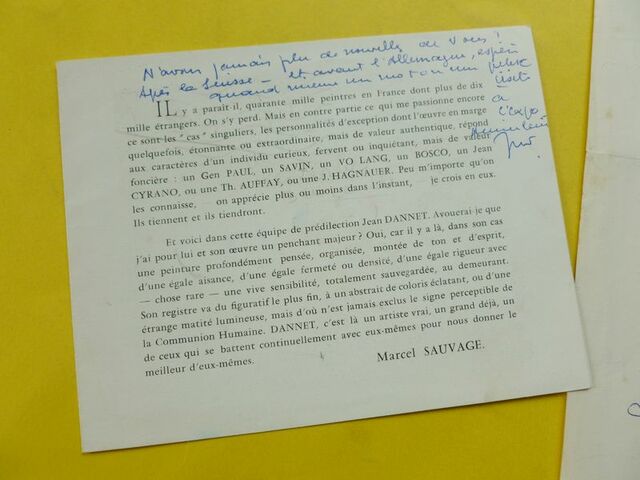 N'avons jamais plus de nouvelles de vous !
Après la Suisse — et avant l'Allemagne, espère
quand même un mot ou une petite
visite
à
l'expo
IL y a paraît il, quarante mille peintres en France dont plus de dix
mille étrangers. On s'y perd. Mais en contre partie ce qui me passionne encore
ce sont les "cas" singuliers, les personnalités d'exception dont l'œuvre en marge
quelquefois, étonnante ou extraordinaire, mais de valeur authentique, répond
aux caractères d'un individu curieux, fervent ou inquiétant, mais de valeur
foncière : un Gen PAUL, un SAVIN, un VO LANG, un BOSCO, un Jean
CYRANO, ou une Th. AUFFAY, ou une J. HAGNAUER. Peu m'importe qu'on
les connaisse, on apprécie plus ou moins dans l'instant, je crois en eux.
Ils tiennent et ils tiendront.
Et voici dans cette équipe de prédilection Jean DANNET. Avouerai-je que
j'ai pour lui et son œuvre un penchant majeur ? Oui, car il y a là, dans son cas
une peinture profondément pensée, organisée, montée de ton et d'esprit,
d'une égale aisance, d'une égale fermeté ou densité, d'une égale rigueur avec
— chose rare — une vive sensibilité, totalement sauvegardée, au demeurant.
Son registre va du figuratif le plus fin, à un abstrait de coloris éclatant, ou d'une
étrange matité lumineuse, mais d'où n'est jamais exclus le signe perceptible de
la Communion Humaine. DANNET, c'est là un artiste vrai, un grand déjà, un
de ceux qui se battent continuellement avec eux-mêmes pour nous donner le
meilleur d'eux-mêmes.
Marcel SAUVAGE.